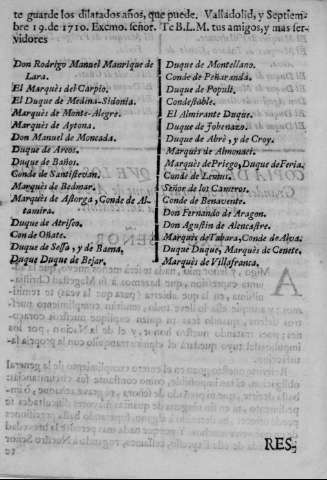 te guarde los dilatados años, que puede. Valladolid, y Septiem-
bre 19. de 1710. Excmo. señor. Te B.L.M. tus amigos, y mas ser-
vidores
Don Rodrigo Manuel Manrique de
Lara.
El Marquès del Carpio.
El Duque de Medina-Sidonia.
Marquès de Monte-Alegre.
Marquès de Aytona.
Don Manuel de Moncada.
Duque de Arcos.
Duque de Baños.
Conde de Santistevan.
Marquès de Bedmar.
Marquès de Astorga, Conde de Al-
tamira.
Duque de Atrisco.
Con de Oñate.
Duque de Sessa, y de Baena,
Duque Duque de Bejar.
Duque de Montellano.
Conde de Peñaranda.
Duque de Populi.
Condestable.
El Almirante Duque.
Duque de Jobenazo.
Duque de Abrè, y de Croy.
Marquès de Almonaci.
Marquès de Priego, Duque de Feria.
Conde de Lemus.
Señor de los Cameros.
Conde de Benavente.
Don Fernando de Aragon.
Don Agustin de Alencastre.
Marquès de Tabara, Conde de Alva.
Duque Duque, Marquès de Cenete.
Marquès de Villafranca.
RES-